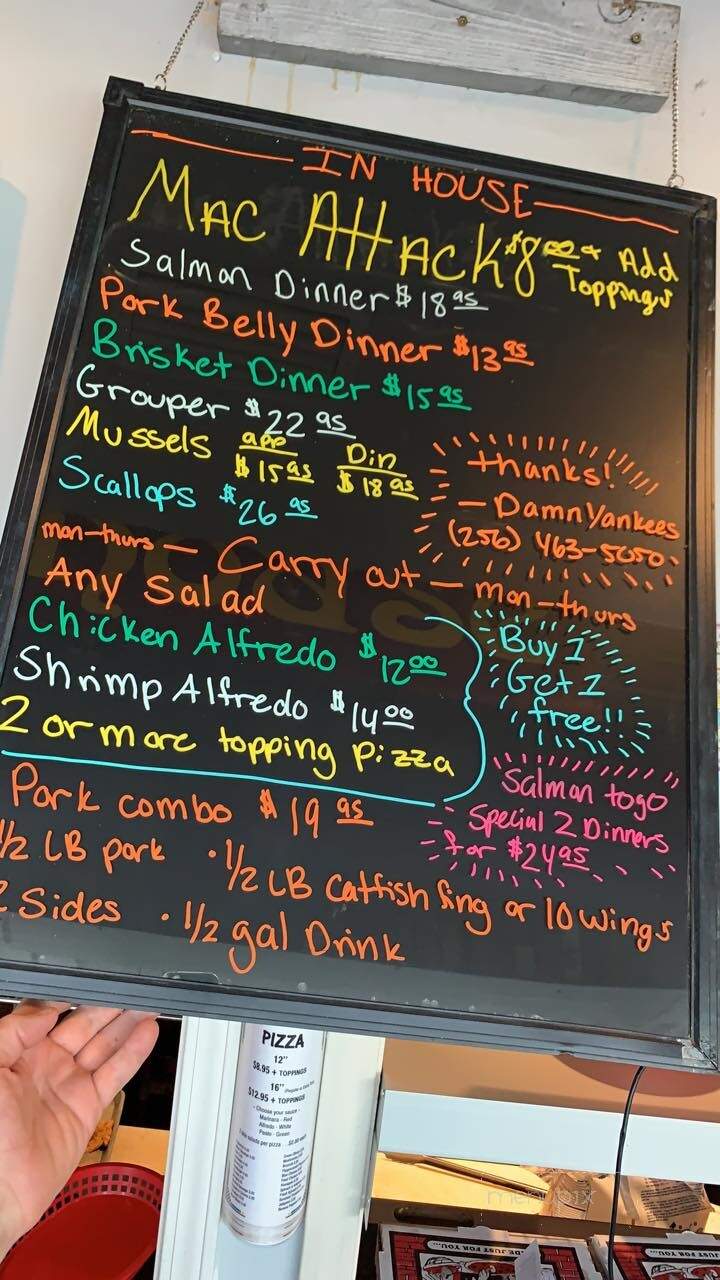 IN HOUSE
Mac Attack $8 00 + Add Toppings
Salman Dinner $18 95
Pork Belly Dinner $13 95
Brisket Dinner $15 95
Grouper $22 95
Mussels app $15 95 Din $18 95
Scallops $26 95
thanks!
- Damn Yankees
(256) 463-5050
mon-thurs - Carry out - mon-thurs
Any Salad
Chicken Alfredo $12 00
Shrimp Alfredo $14 00
2 or more topping pizza
Buy 1
Get 1
free!!
Salman togo
Special 2 Dinners
for $24 95
Pork combo $19 95
1/2 LB pork · 1/2 LB Catfish fing or 10 wings
2 Sides · 1/2 gal Drink
PIZZA
12"
$8.95 + TOPPINGS
16"
$12.95 + TOPPINGS
- Choose your sauce -
Marinara - Red
Alfredo - White
Pesto - Green
menupix